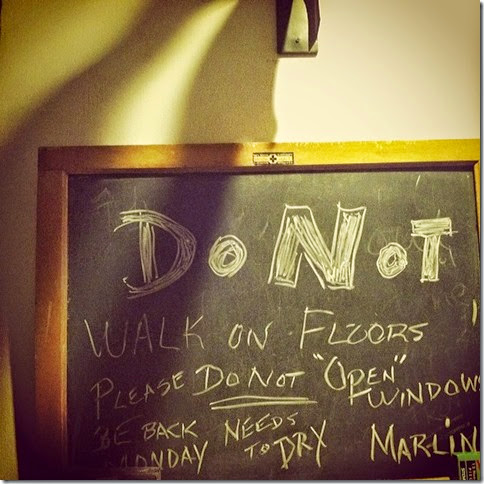 DO NOT
WALK ON FLOORS
PLEASE DO NOT "OPEN" WINDOWS
BE BACK NEEDS
MONDAY TO DRY MARLIN